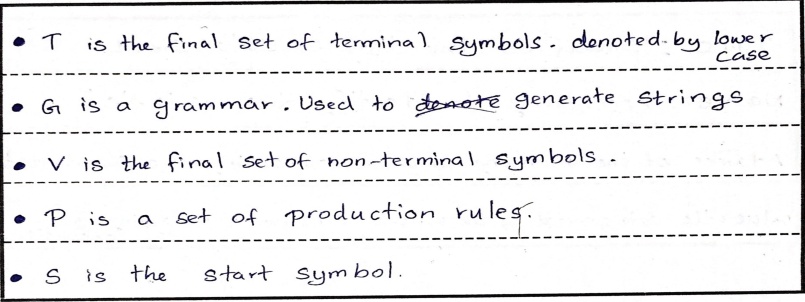 • T is the final set of terminal symbols. denoted by lower case
• G is a grammar. Used to denote generate strings
• V is the final set of non-terminal symbols.
• P is a set of production rules.
• S is the start symbol.